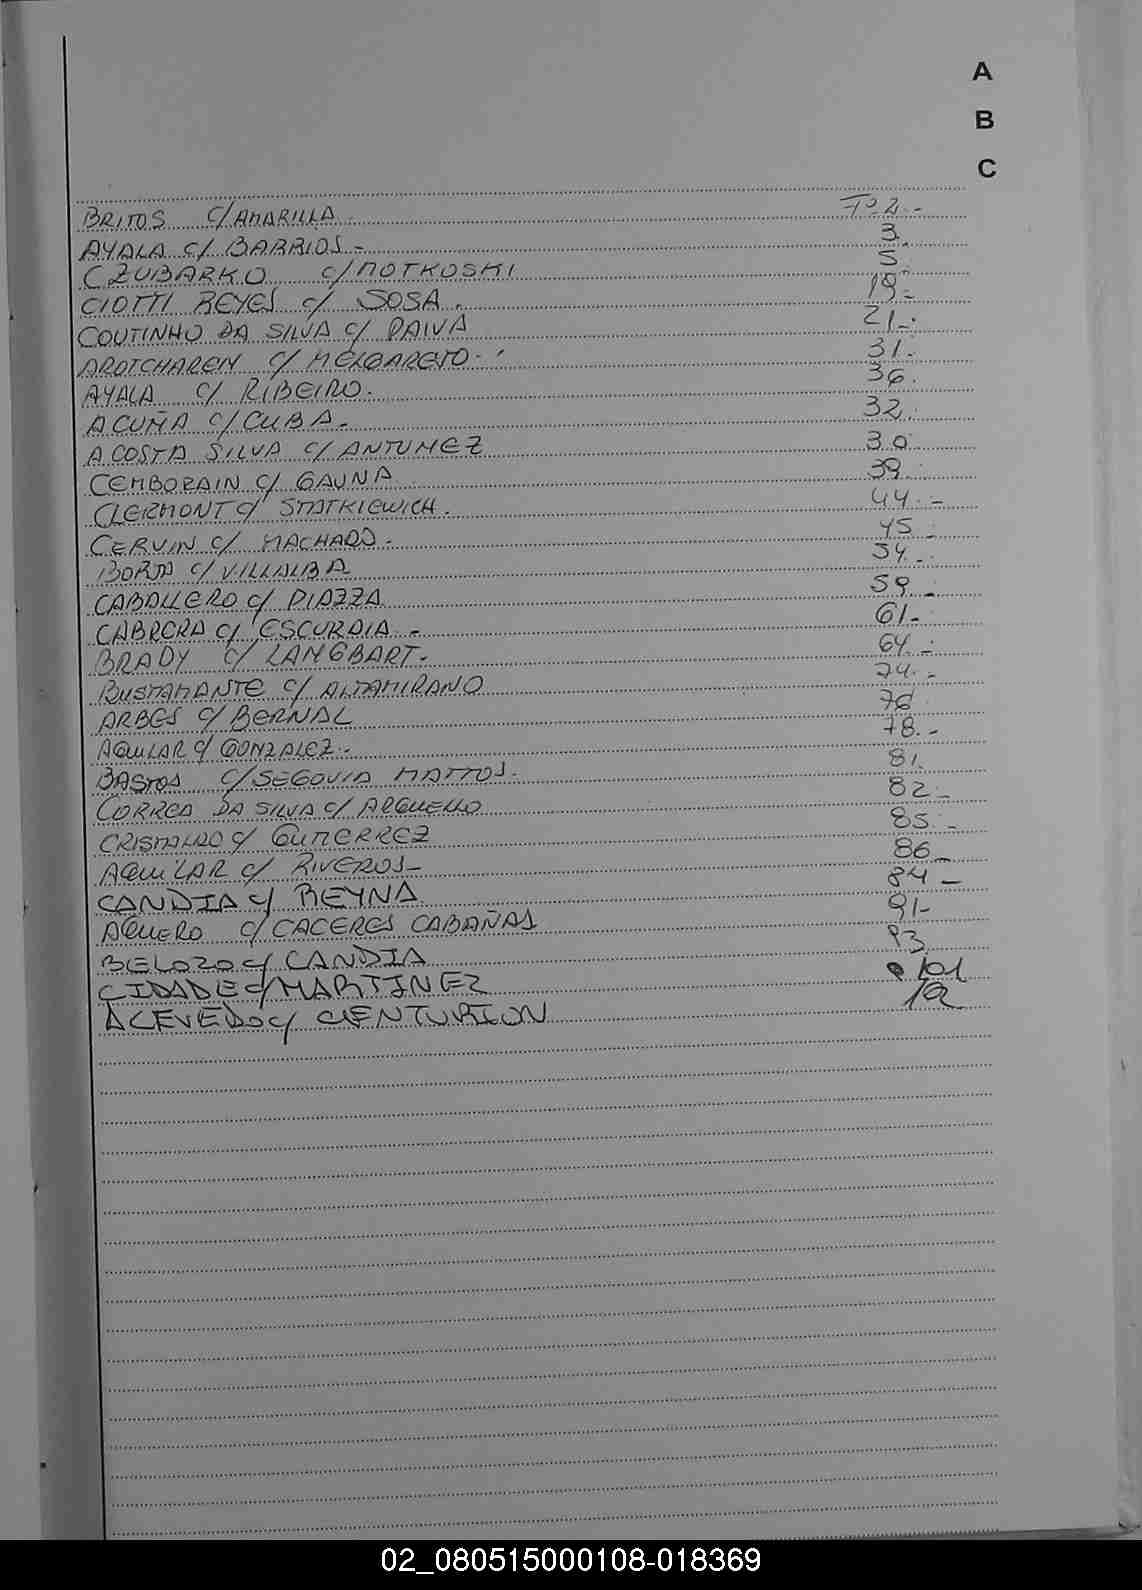 A
B
C
BRITOS C/ AMARILLA. Fº 2.-
AYALA C/ BARRIOS.- 3.
CZUBARKO C/ NOTKOSKI 5.
CIOTTI REYES C/ SOSA. 19.-
COUTINHO DA SILVA C/ PAIVA 21.-
AROTCHAREN C/ MELGAREJO.- 31.
AYALA C/ RIBEIRO. 36.
ACUÑA C/ CUBA. 32.
ACOSTA SILVA C/ ANTUNEZ 30.
CEMBORAIN C/ GAUNA 39.
CLERMONT C/ STATKIEWICH. 44.-
CERVIN C/ MACHADO. 45.-
BORJA C/ VILLALBA 54.-
CABALLERO C/ PIAZZA 59.-
CABRERA C/ ESCURDIA.- 61.-
BRADY C/ LANGBART. 64.-
BUSTAMANTE C/ ALTAMIRANO 74.-
ARBES C/ BERNAL 76
AGUILAR C/ GONZALEZ.- 78.-
BASTOS C/ SEGOVIA MATTOS. 81.
CORREA DA SILVA C/ ARGUELLO 82.-
CRISTALDO C/ GUTIERREZ 85.-
AGUILAR C/ RIVEROS- 86-
CANDIA C/ REYNA 84-
AGUERO C/ CACERES CABAÑAS 91-
BELOZO C/ CANDIA 93
CIDADE C/ MARTINEZ 101
ACEVEDO C/ CENTURION
02_080515000108-018369